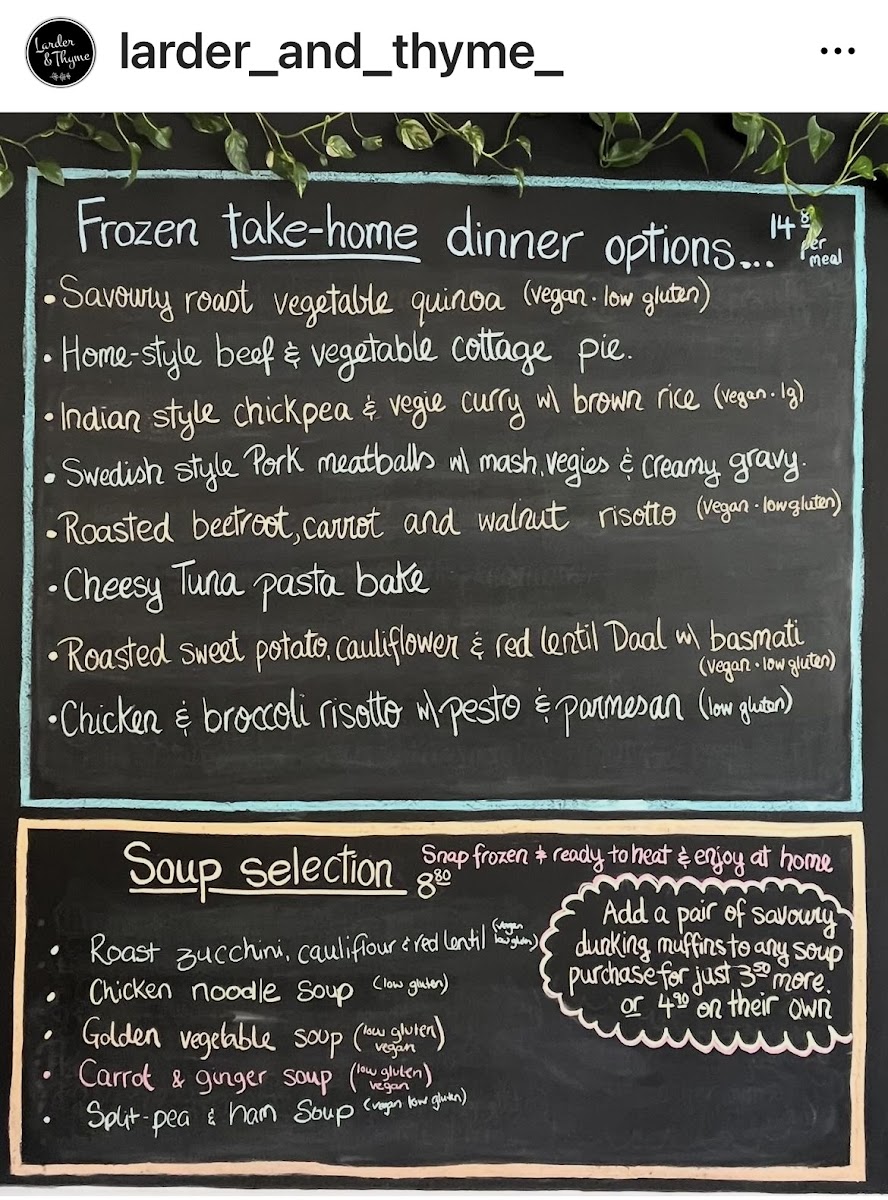 Larder
& Thyme
larder_and_thyme_
Frozen take-home dinner options... 14 8 per meal
• Savoury roast vegetable quinoa (vegan · low gluten)
• Home-style beef & vegetable cottage pie.
• Indian style chickpea & vegie curry w\ brown rice (vegan · lg)
• Swedish style Pork meatballs w\ mash, vegies & creamy gravy.
• Roasted beetroot, carrot and walnut risotto (vegan · low gluten)
• Cheesy Tuna pasta bake
• Roasted sweet potato, cauliflower & red lentil Daal w\ basmati
(vegan · low gluten)
• Chicken & broccoli risotto w\ pesto & parmesan (low gluten)
Soup selection 8.80
Snap frozen & ready to heat & enjoy at home
• Roast zucchini, cauliflour & red lentil (vegan low gluten)
• Chicken noodle soup (low gluten)
• Golden vegetable soup (low gluten vegan)
• Carrot & ginger soup (low gluten vegan)
• Split-pea & ham Soup (vegan low gluten)
Add a pair of savoury
dunking muffins to any soup
purchase for just 3.50 more.
or 4.90 on their own